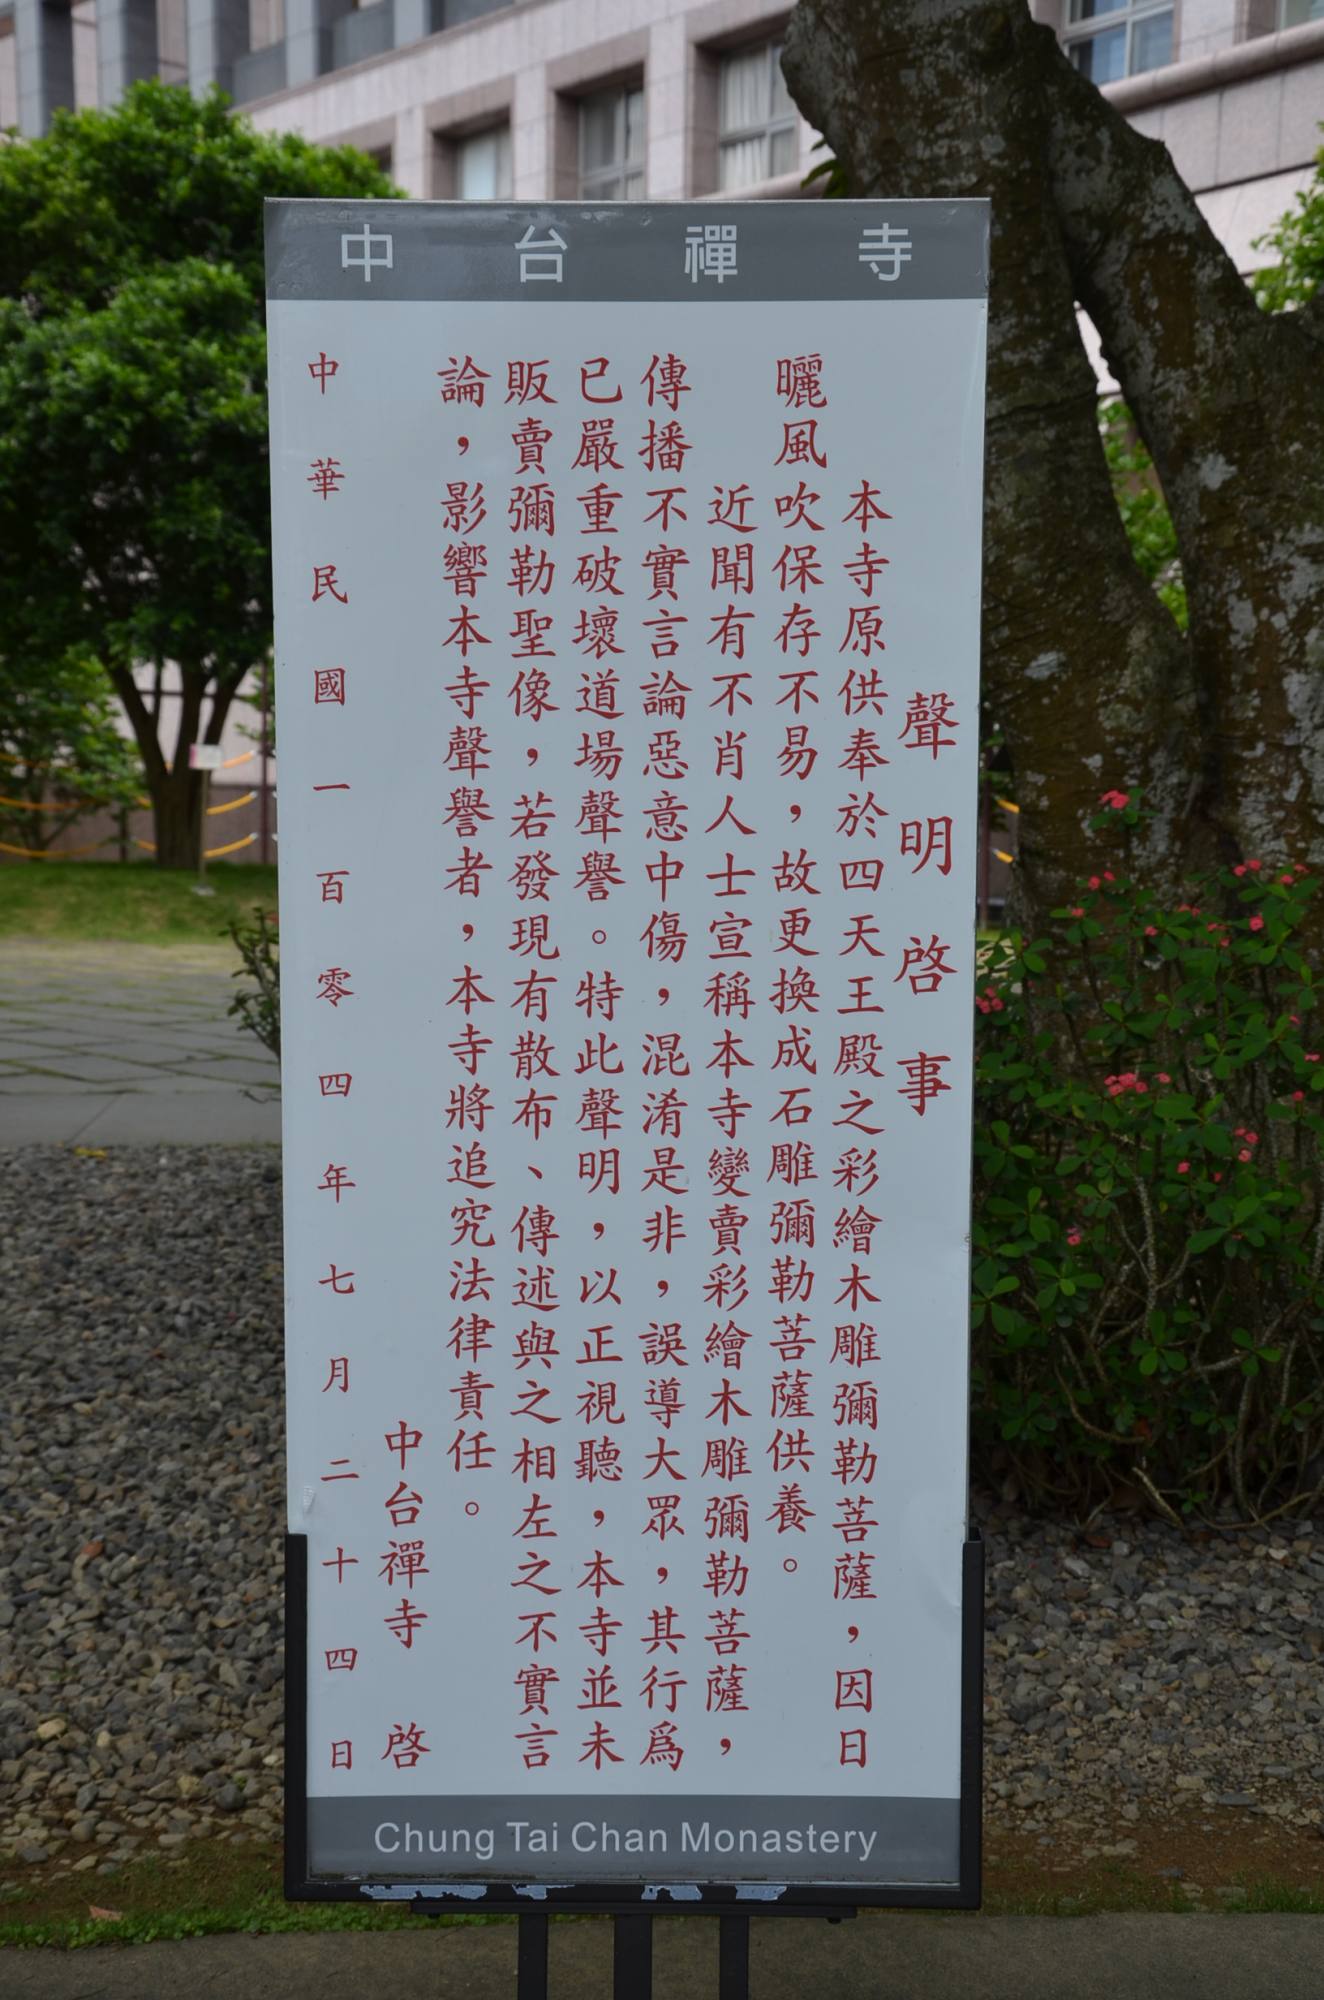 中台禪寺
聲明啓事
本寺原供奉於四天王殿之彩繪木雕彌勒菩薩，因日
曬風吹保存不易，故更換成石雕彌勒菩薩供養。
近聞有不肖人士宣稱本寺變賣彩繪木雕彌勒菩薩，
傳播不實言論惡意中傷，混淆是非，誤導大眾，其行爲
已嚴重破壞道場聲譽。特此聲明，以正視聽，本寺並未
販賣彌勒聖像，若發現有散布、傳述與之相左之不實言
論，影響本寺聲譽者，本寺將追究法律責任。
中台禪寺 啓
中華民國一百零四年七月二十四日
Chung Tai Chan Monastery